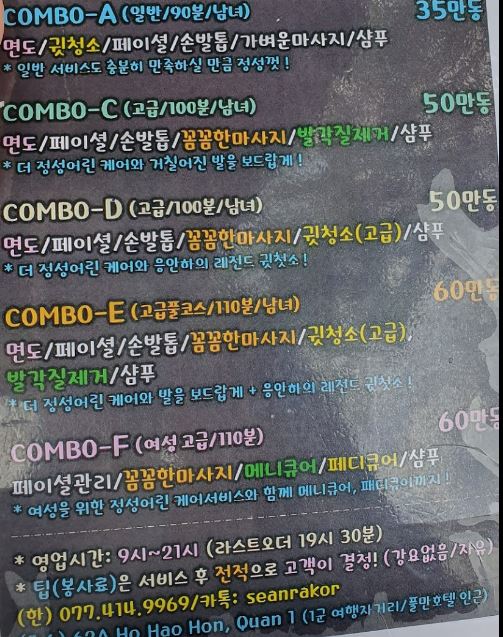 COMBO-A (일반/90분/남녀) 35만동
면도/귓청소/페이셜/손발톱/가벼운마사지/샴푸
* 일반 서비스도 충분히 만족하실 만큼 정성껏 !
COMBO-C (고급/100분/남녀) 50만동
면도/페이셜/손발톱/꼼꼼한마사지/발각질제거/샴푸
* 더 정성어린 케어와 거칠어진 발을 보드랍게 !
COMBO-D (고급/100분/남녀) 50만동
면도/페이셜/손발톱/꼼꼼한마사지/귓청소(고급)/샴푸
* 더 정성어린 케어와 응안하의 레전드 귓청소 !
COMBO-E (고급풀코스/110분/남녀) 60만동
면도/페이셜/손발톱/꼼꼼한마사지/귓청소(고급),
발각질제거/샴푸
* 더 정성어린 케어와 발을 보드랍게 + 응안하의 레전드 귓청소 !
COMBO-F (여성 고급/110분) 60만동
페이셜관리/꼼꼼한마사지/메니큐어/페디큐어/샴푸
* 여성을 위한 정성어린 케어서비스와 함께 메니큐어, 패디큐어까지 !
* 영업시간: 9시~21시 (라스트오더 19시 30분)
* 팁(봉사료)은 서비스 후 전적으로 고객이 결정! (강요없음/자유)
(한) 077.414.9969/카톡: seanrakor
62A Ho Hao Hon, Quan 1 (1군 여행자거리/풀만호텔 인근)